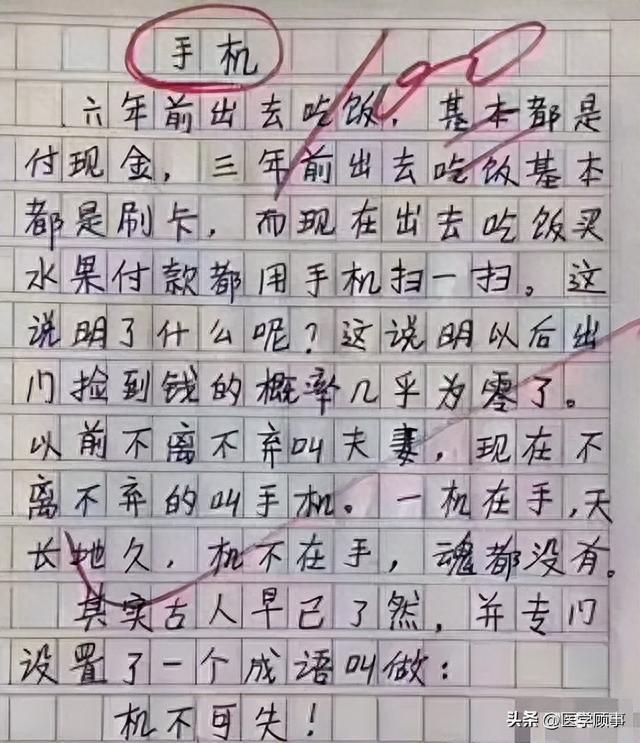 手机
100
六年前出去吃饭，基本都是
付现金，三年前出去吃饭基本
都是刷卡，而现在出去吃饭买
水果付款都用手机扫一扫。这
说明了什么呢？这说明以后出
门捡到钱的概率几乎为零了。
以前不离不弃叫夫妻，现在不
离不弃的叫手机。一机在手，天
长地久，机不在手，魂都没有。
其实古人早已了然，并专门
设置了一个成语叫做：
机不可失！
头条 @医学顾事